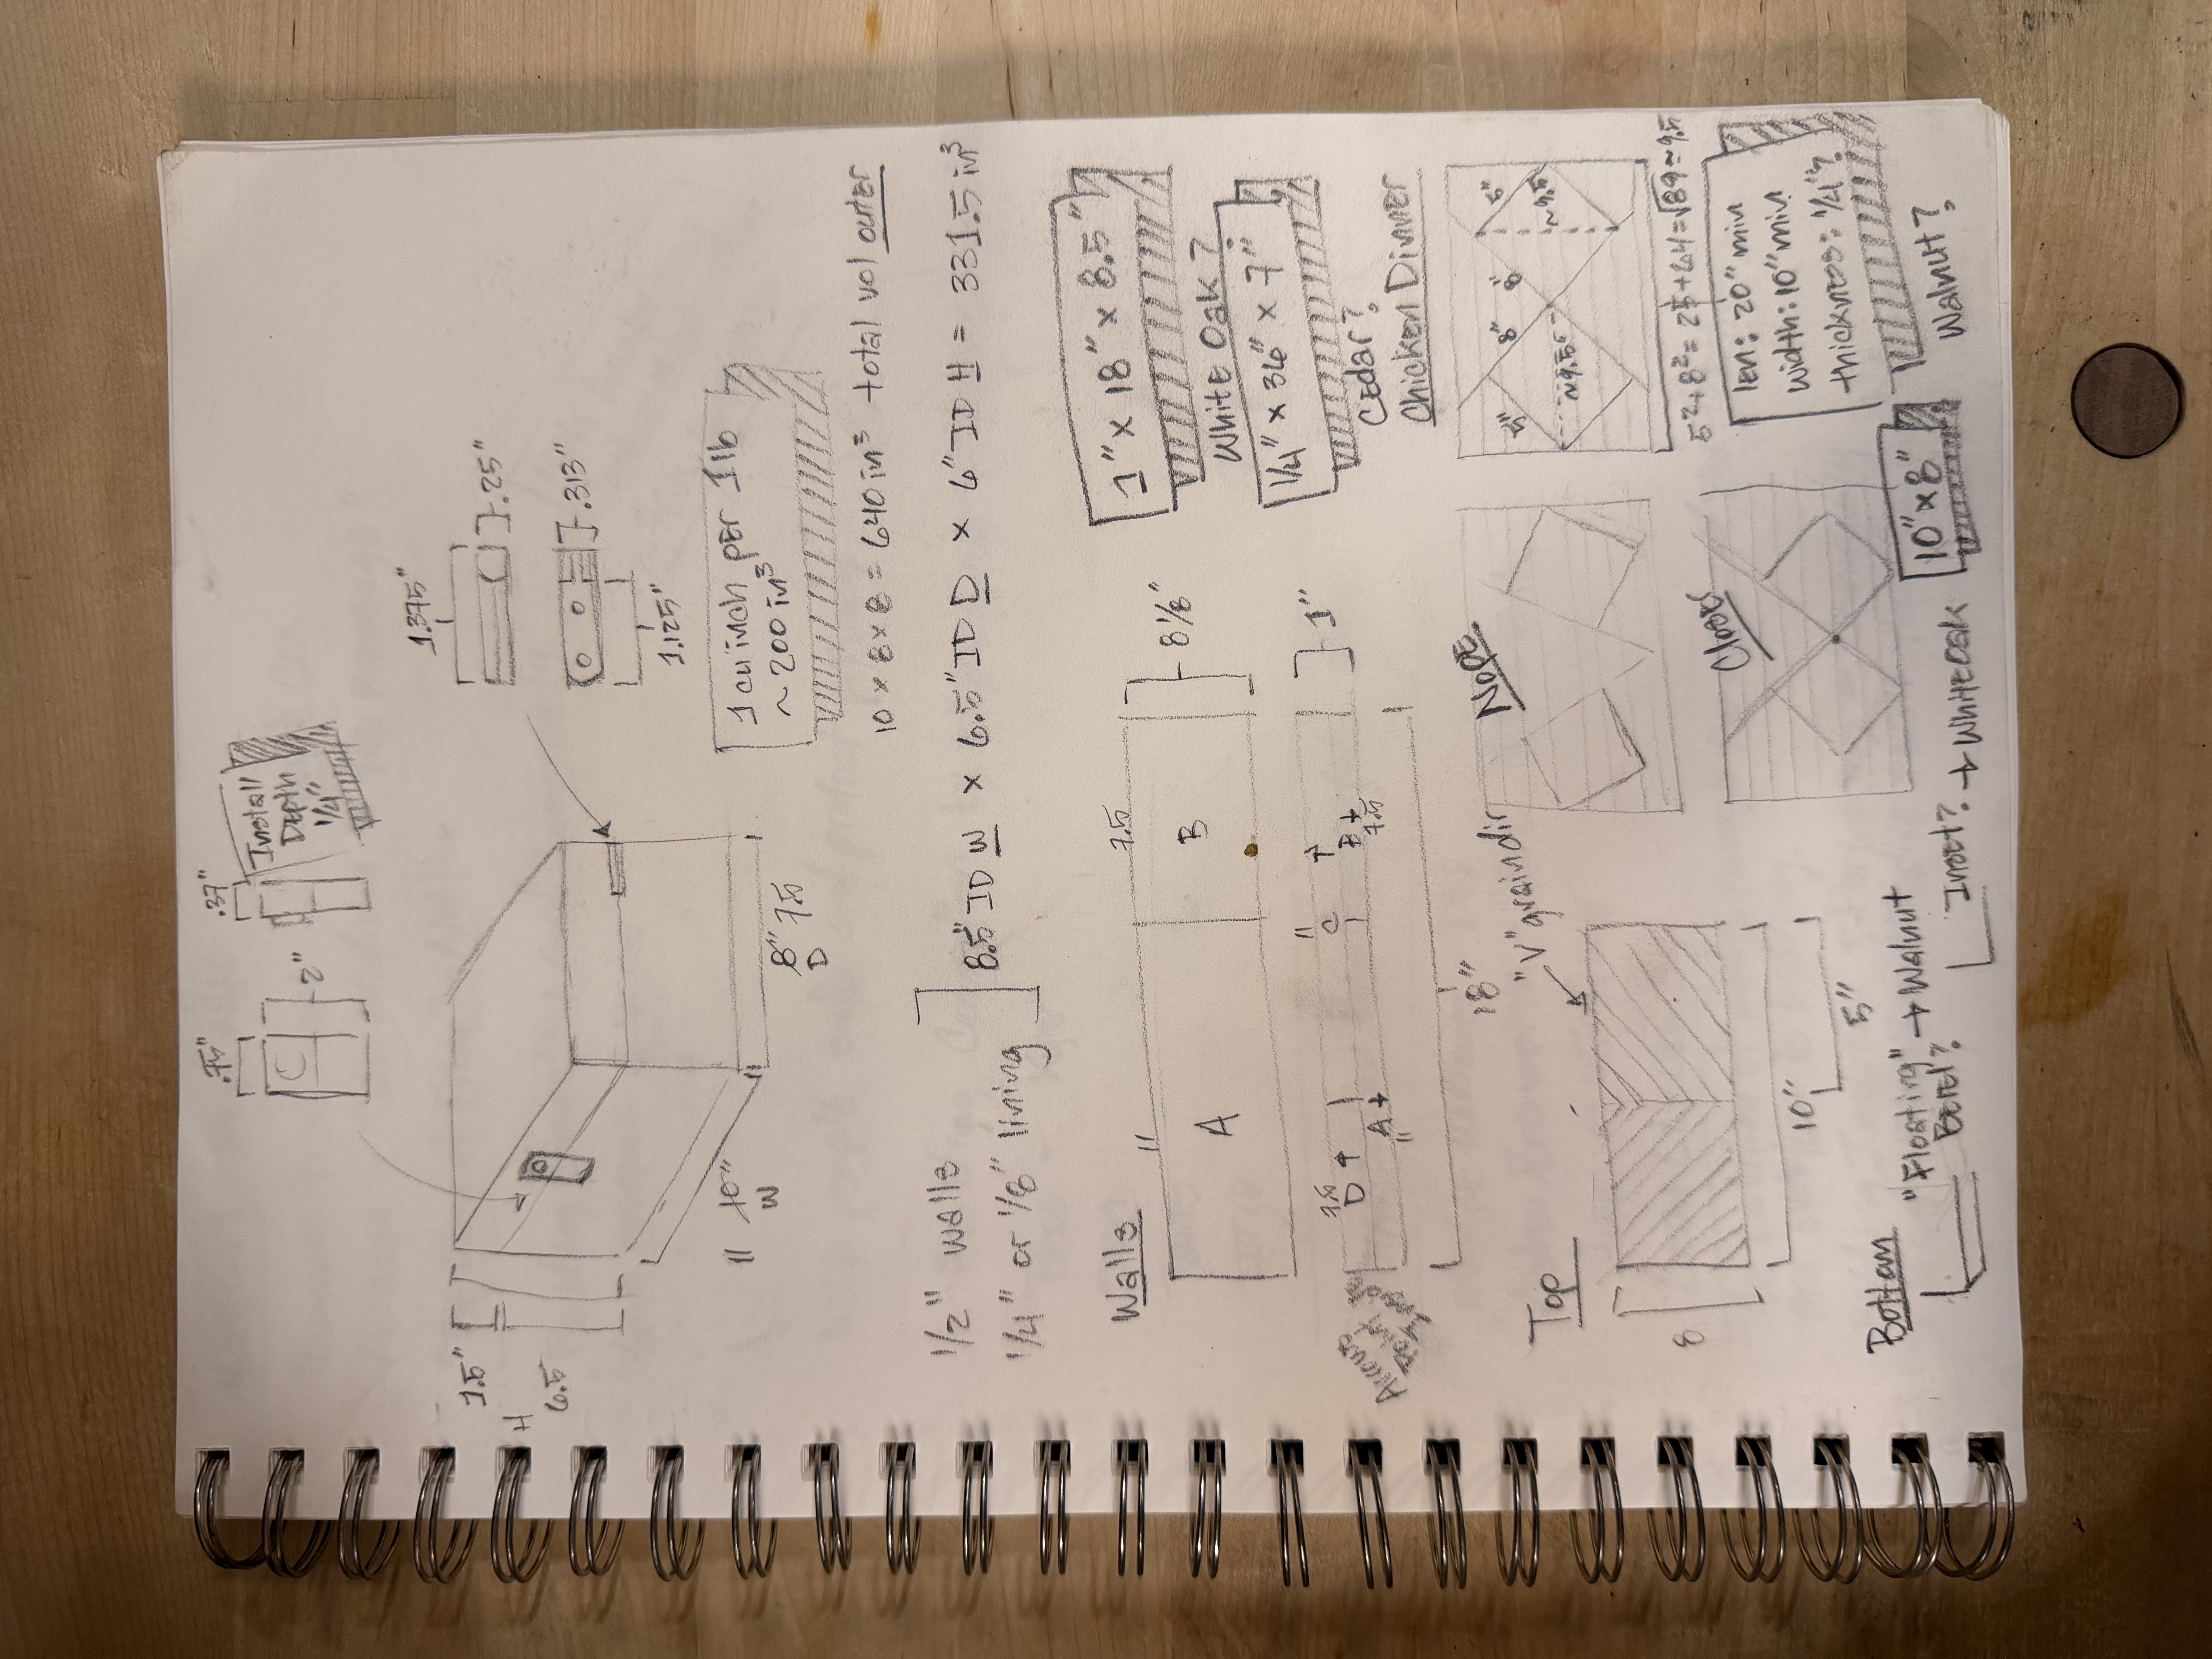 .75"
2"
.37"
Install
Depth
1/4"
1.375"
.25"
.313"
1.125"
1.5"
H
6.5
11 10"
W
8" 7.5
D
1 cu inch per 1lb
~200 in³
10 x 8 x 8 = 640 in³ total vol outer
1/2" walls
1/4" or 1/8" lining
8.5" ID W x 6.5" ID D x 6" ID H = 331.5 in³
Walls
11
A
7.5
B
8 1/8"
1" x 18" x 8.5"
White Oak?
7.5
D
A
11
11
C
B
7.5
1"
18"
1/4" x 36" x 7"
Cedar?
Top
"V" grain dir
8
10"
5"
Nope
Close
Chicken Dinner
5"
8"
8"
5"
~9.5"
~9.5
5²+8²=25+64=√89≈9.5
len: 20" min
width: 10" min
thickness: 1/4"?
Walnut?
10" x 8"
Bottom
"Floating" → Walnut
Bevel?
Inset? → White Oak